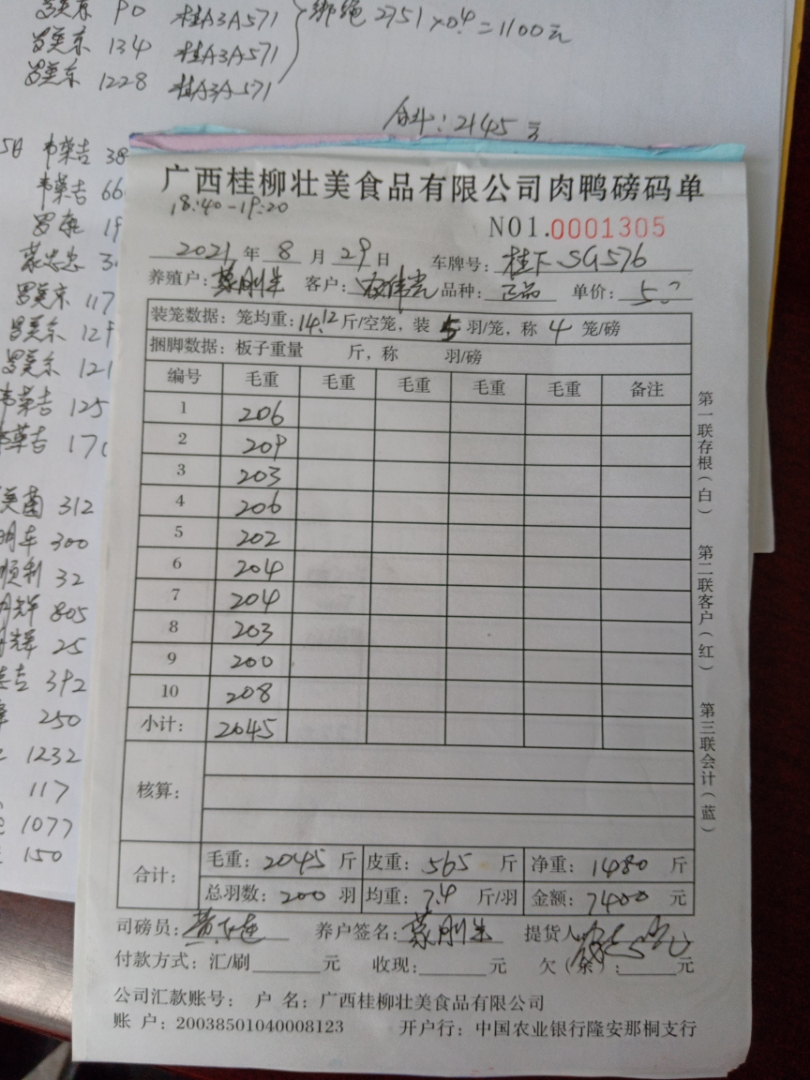 90 桂A3A571
134 桂A3A571 绑绳 2751×0.4=1100元
1228 桂A3A571
合计:2145元
韦荣吉 38
韦荣吉 66
罗 19
蒙忠忠 3
117
129
121
韦荣吉 125
韦荣吉 170
312
明车 300
顺利 32
明辉 805
明辉 25
吉 392
250
1232
117
1077
150
广西桂柳壮美食品有限公司肉鸭磅码单
18:40-19:20
NO1.0001305
2021 年 8 月 29 日 车牌号: SG576
养殖户: 蒙刚生 客户: 品种: 正品 单价: 5.0
装笼数据: 笼均重: 14.12 斤/空笼, 装 5 羽/笼, 称 4 笼/磅
捆脚数据: 板子重量 斤, 称 羽/磅
编号 毛重 毛重 毛重 毛重 毛重 备注
1 206
2 209
3 203
4 206
5 202
6 204
7 204
8 203
9 200
10 208
小计: 2045
核算:
合计: 毛重: 2045 斤 皮重: 565 斤 净重: 1480 斤
总羽数: 200 羽 均重: 7.4 斤/羽 金额: 7400 元
司磅员: 黄 养户签名: 蒙刚生 提货人
付款方式: 汇/刷 元 收现: 元 欠(条): 元
公司汇款账号: 户 名: 广西桂柳壮美食品有限公司
账 户: 20038501040008123 开户行: 中国农业银行隆安那桐支行
第一联存根(白)
第二联客户(红)
第三联会计(蓝)